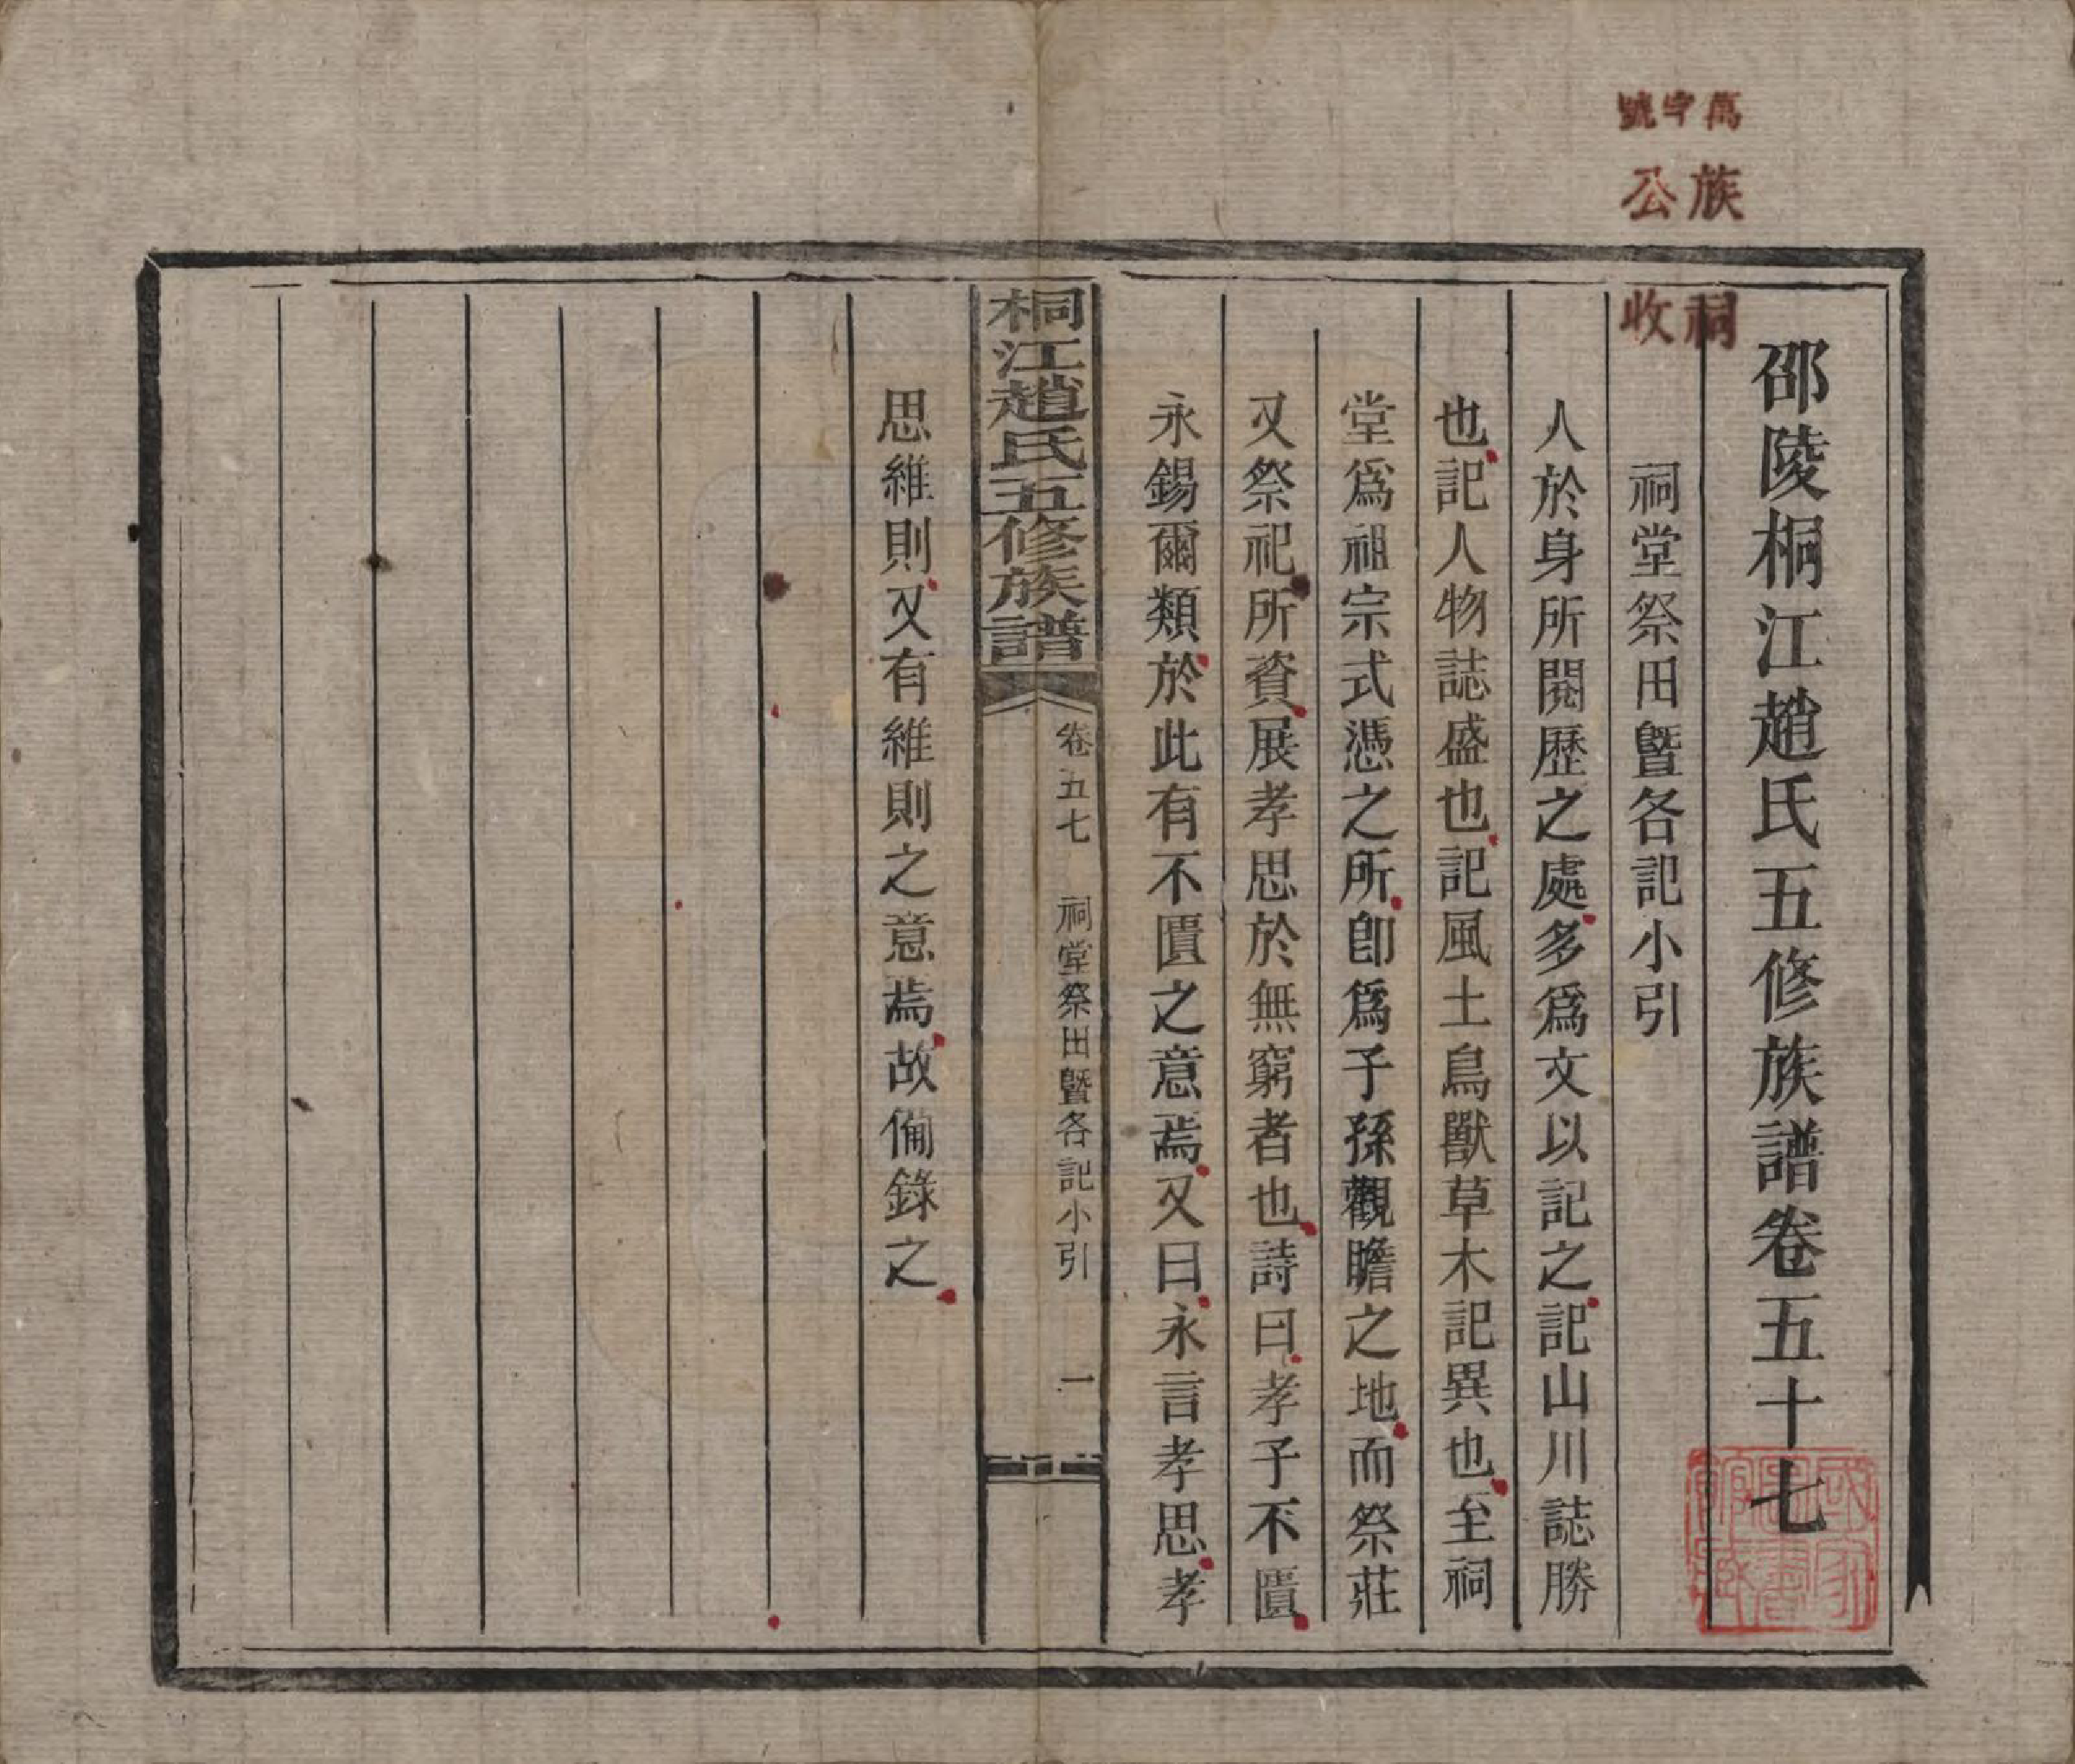 萬字號
族公
祠收
邵陵桐江趙氏五修族譜卷五十七
祠堂祭田暨各記小引
人於身所閱歷之處多爲文以記之記山川誌勝
也記人物誌盛也記風土鳥獸草木記異也至祠
堂爲祖宗式憑之所卽爲子孫觀瞻之地而祭莊
又祭祀所資展孝思於無窮者也詩曰孝子不匱
永錫爾類於此有不匱之意焉又曰永言孝思孝
桐江趙氏五修族譜
卷五七 祠堂祭田暨各記小引 一
思維則又有維則之意焉故備錄之
國家圖書館藏